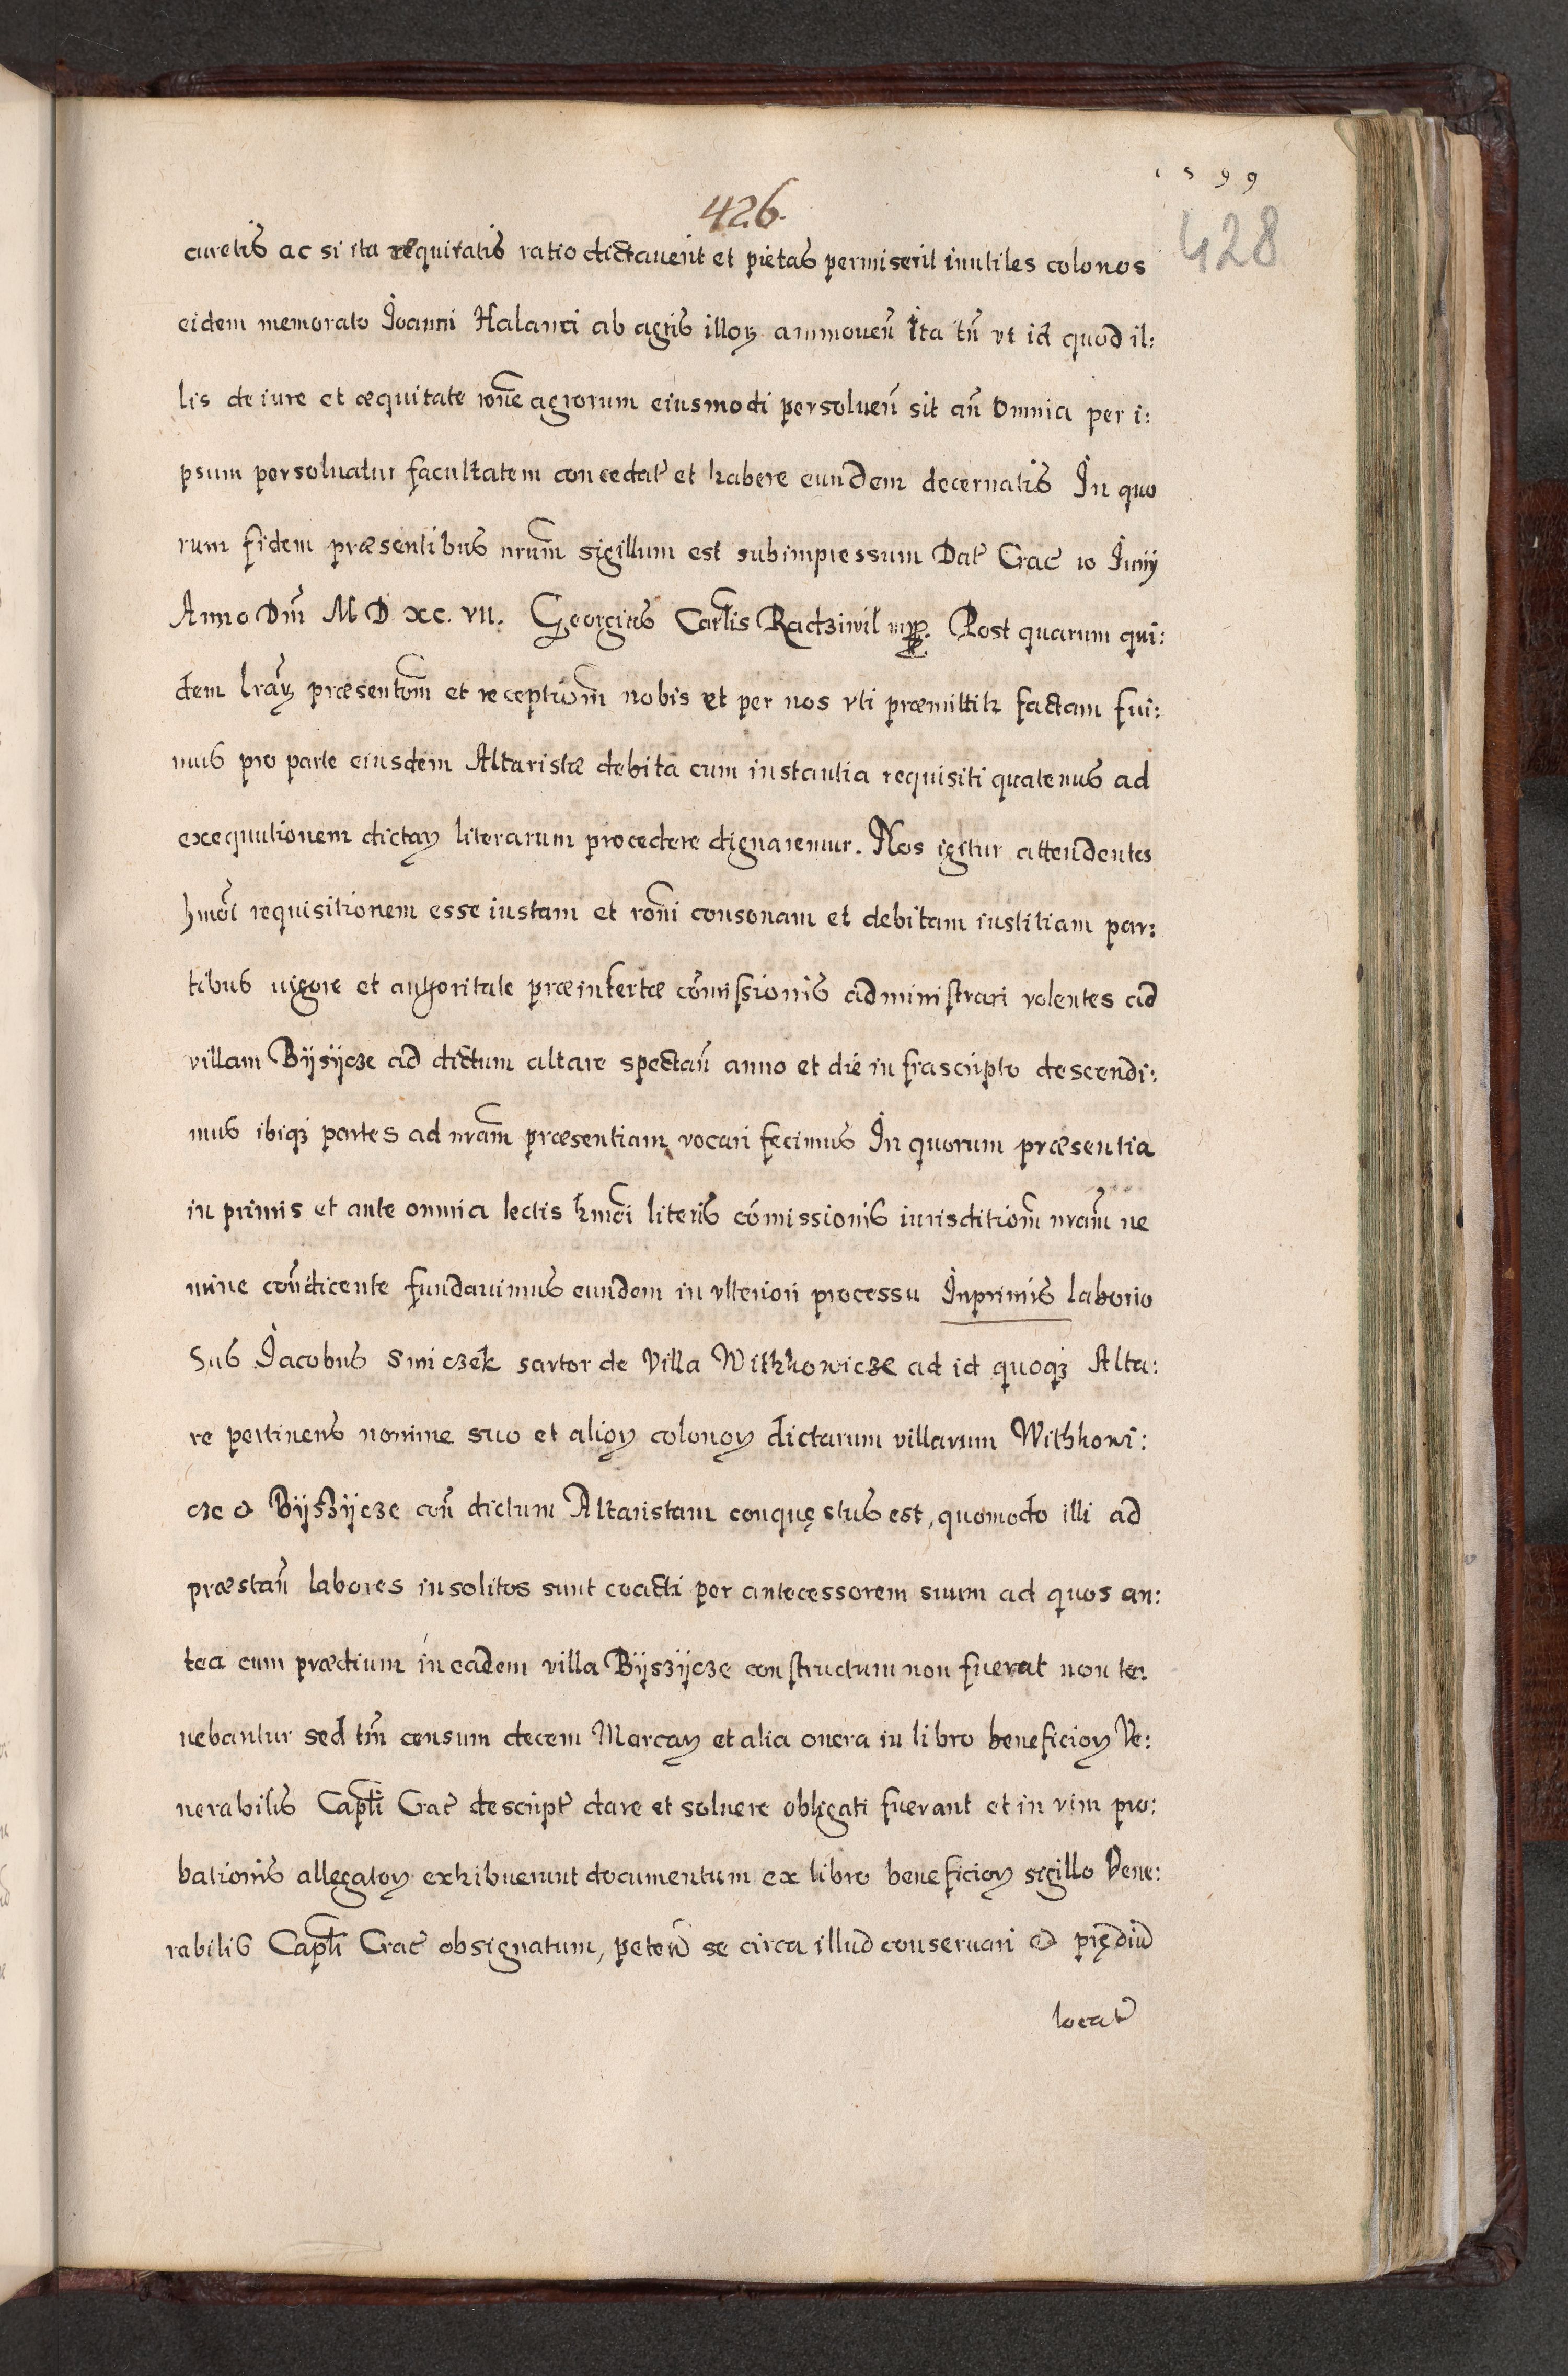 1599
426.
428
curetis ac si ita æquitatis ratio dictauerit et pietas permiserit inutiles colonos
eidem memorato Joanni Halanci ab agris illoꝝ ammoueñ Ita tñ vt id quod il:
lis de iure et æquitate rõne agrorum eiusmodi persolueñ sit añ Omnia per i:
psum persoluatur facultatem concedat̃ et habere eundem decernatis In quo
rum fidem præsentibus nr̃um sigillum est subimpressum Dat̃ Crac̃ 10 Junij
Anno Dñi M D XC. VII. Georgius Car̃lis Radziwil mpp. Post quarum qui:
dem lr̃aꝝ præsentõm et receptionẽm nobis et per nos vti præmittitr̃ factam fui:
mus pro parte eiusdem Altaristæ debita cum instantia requisiti quatenus ad
exequutionem dictaꝝ literarum procedere dignaremur. Nos igitur attendentes
hmõi requisitionem esse iustam et rõni consonam et debitam iustitiam par:
tibus uigore et authoritate præinsertæ cõmissionis administrari volentes ad
villam Bÿsÿcze ad dictum altare spectañ anno et die infrascripto descendi:
mus ibiqꝫ partes ad nr̃am præsentiam vocari fecimus In quorum præsentia
in primis et ante omnia lectis hmõi literis cõmissionis iurisditionẽm nr̃am ne
mine coñdicente fundauimus eundem in vlteriori processu Inprimis laborio
sus Jacobus Smiczek sartor de Villa Withkowicze ad id quoqꝫ Alta:
re pertinens nomine suo et alioꝝ colonoꝝ dictarum villarum Withkowi:
cze & Bÿszÿcze coñ dictum Altaristam conquęstus est, quomodo illi ad
præstañ labores insolitos sunt coacti per antecessorem suum ad quos an:
tea cum prædium in eadem villa Bÿszÿcze constructum non fuerat non te:
nebantur sed tm̃ censum decem Marcaꝝ et alia onera in libro beneficioꝝ Ve:
nerabilis Capt̃li Crac̃ descript̃ dare et soluere obligati fuerant et in vim pro:
bationis allegatoꝝ exhibuerunt documentum ex libro beneficioꝝ sigillo Vene:
rabilis Capt̃li Crac̃ obsignatum, peteñ se circa illud conseruari & prędiũ
locat̃